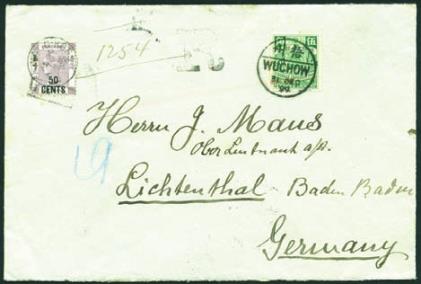 1254
R
50
CENTS
WUCHOW
Herrn J. Maus
Ober Lieutnant a/D.
Lichtenthal - Baden Baden
Germany